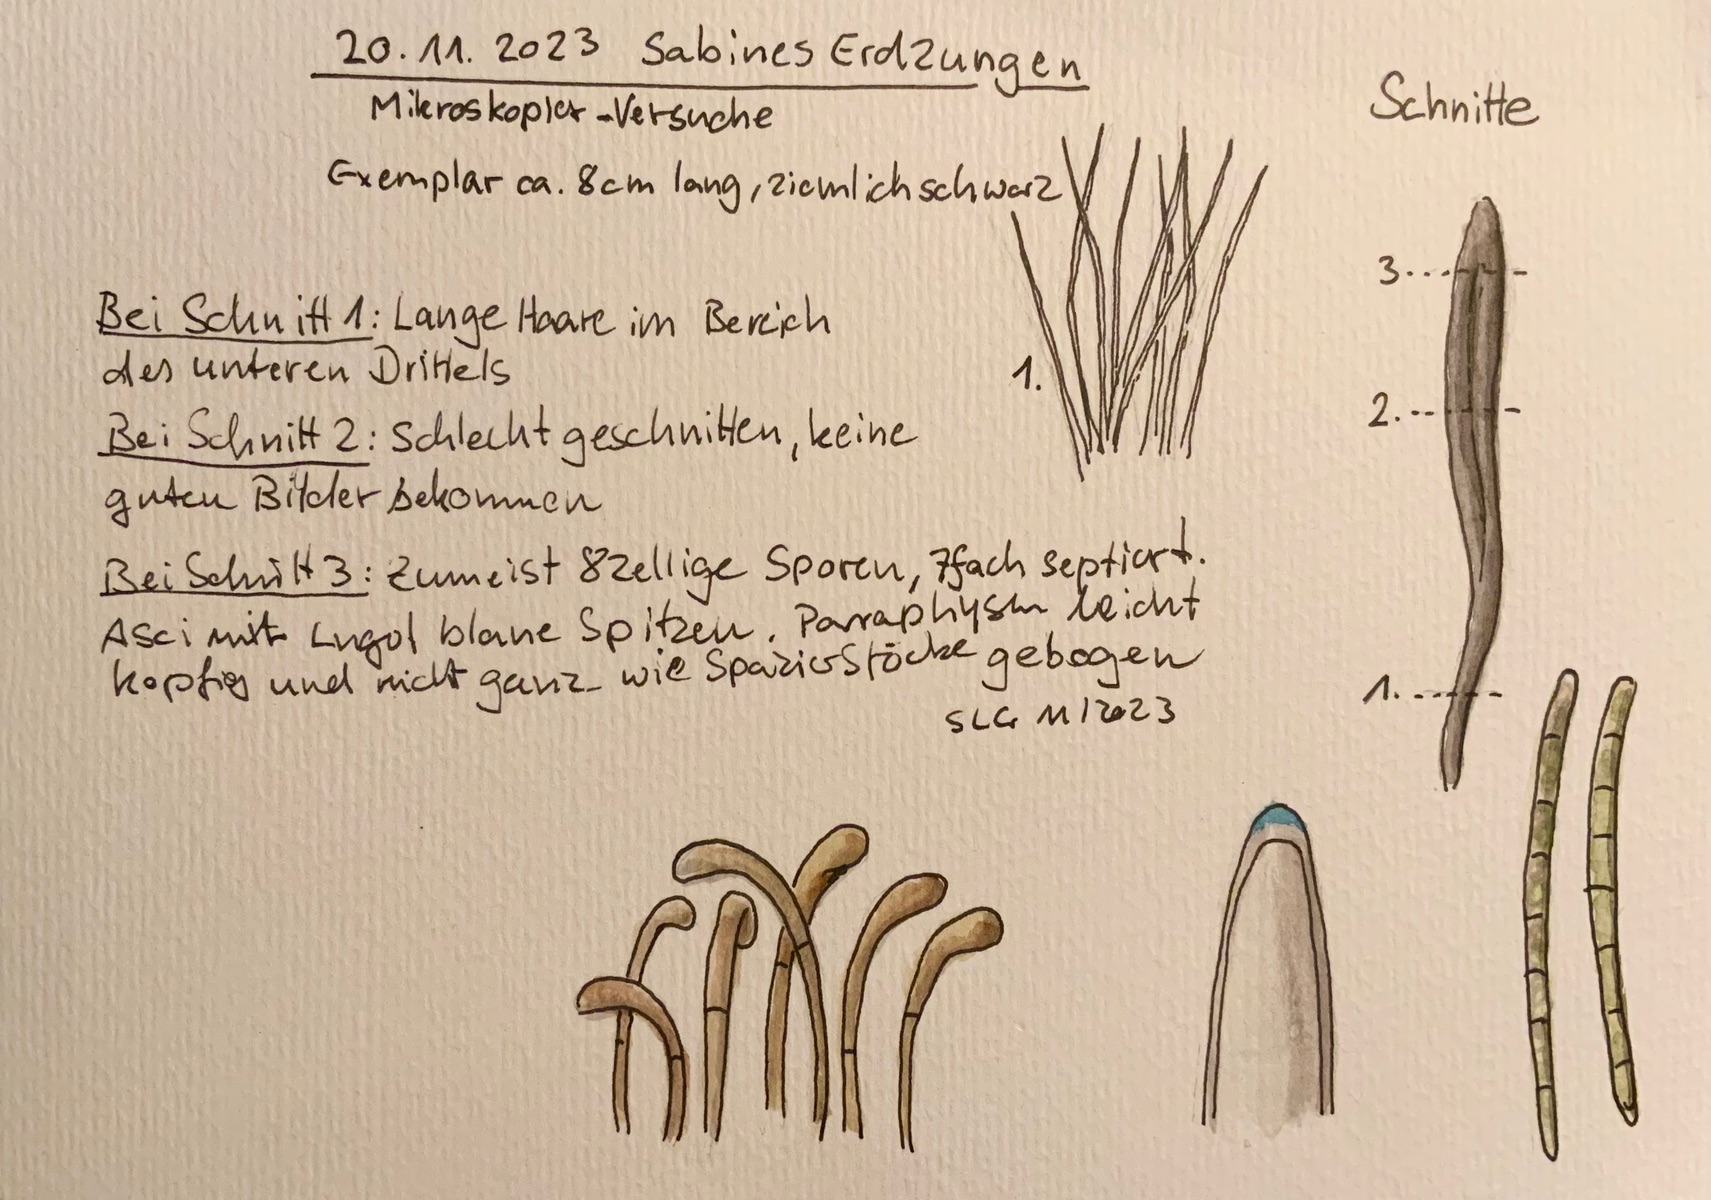 20.11.2023 Sabines Erdzungen
Mikroskopier-Versuche
Exemplar ca. 8cm lang, ziemlich schwarz
Schnitte
3.
2.
1.
1.
Bei Schnitt 1: Lange Haare im Bereich
des unteren Drittels
Bei Schnitt 2: Schlecht geschnitten, keine
guten Bilder bekommen
Bei Schnitt 3: Zumeist 8zellige Sporen, 7fach septiert.
Asci mit Lugol blaue Spitzen. Parraphysen leicht
kopfig und nicht ganz wie Spazierstöcke gebogen
SLG 11/2023